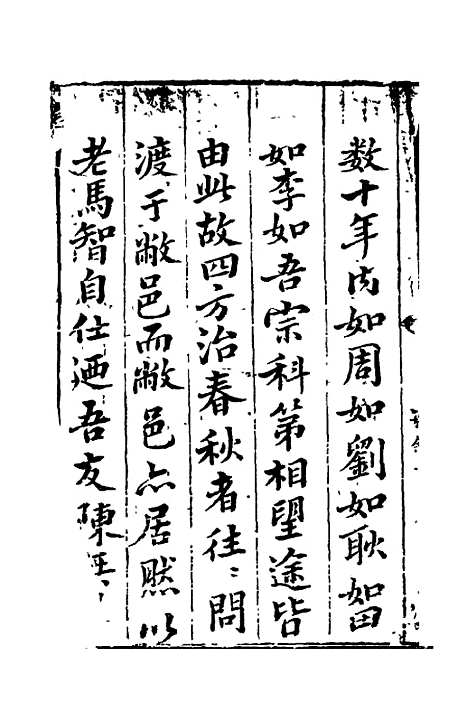 数十年内如周如劉如耿如田
如李如吾宗科第相望途皆
由此故四方治春秋者往〻問
渡于敝邑而敝邑亦居然以
老馬智自任迺吾友陳